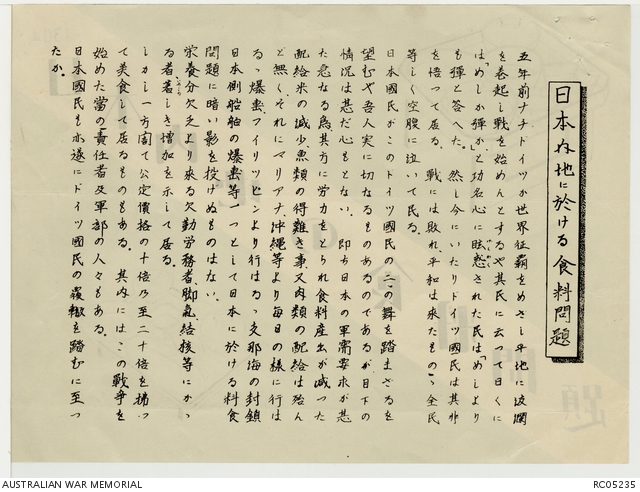 日本内地に於ける食料問題
五年前ナチドイツが世界征覇をめざし平地に波瀾
を巻起し戦を始めんとするや其民に云って曰くに
は「めしか弾か」と功名心に眩惑された民は「めしより
も弾と答へた。然し今にいたりドイツ国民は其非
を悟って居る。戦には敗れ、平和は来たものゝ全民
等しく空腹に泣いて民る。
日本国民がこのドイツ国民の二の舞を踏まざるを
望むや吾人実に切なるものあるのであるが目下の
情況は甚だ心もとない。即ち日本の軍需要求が甚
だ急なる為其方に労力をとられ食料産出が減った
配給米の減少魚類の得難き事又肉類の配給は殆ん
ど無く、それにマリアナ、沖縄等より毎日の様に行は
るゝ爆撃フイリッピンより行はるゝ支那海の封鎖
日本側船舶の爆撃等一つとして日本に於ける料食
問題に暗い影を投げぬものはない。
栄養分欠乏より来る欠勤労務者、脚気、結核等にかゝ
る者著しき増加を示して居る。
しかし一方闇で公定価格の十倍乃至二十倍を拂っ
て美食して居るものもある。其内にはこの戦争を
始めた當の責任者及軍部の人々もある。
日本国民も亦遂にドイツ国民の覆轍を踏むに至っ
たか。
AUSTRALIAN WAR MEMORIAL
RC05235